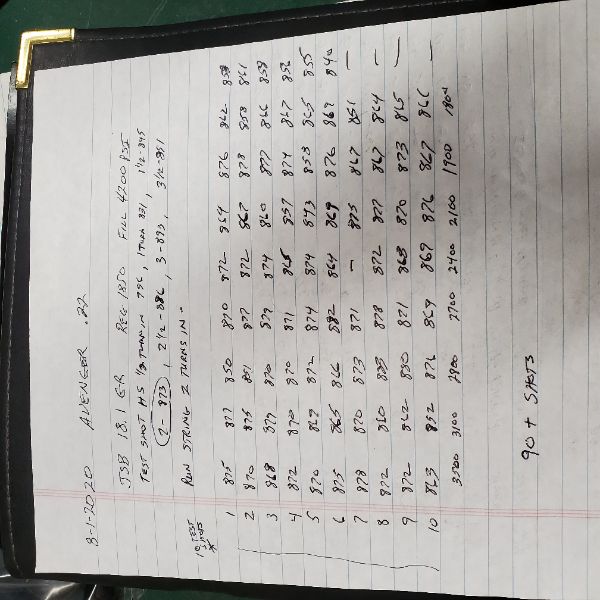 8-1-2020 AVENGER .22
JSB 18.1 GR REG 1850 FILL 4200 PSI
TEST SHOT HS 1/2 TURN IN 796, 1 TURN 831, 1 1/2-845
2-873, 2 1/2-886, 3-893, 3 1/2-891
RUN STRING 2 TURNS IN -
10 TEST SHOTS *
1 875 877 850 870 872 859 876 862 858
2 870 875 851 877 872 867 878 858 861
3 868 879 870 879 874 860 877 866 859
4 872 870 870 871 865 857 874 867 856
5 870 867 872 874 874 843 853 865 855
6 875 865 866 882 864 869 876 862 840
7 878 870 873 871 - 875 867 851 -
8 872 860 883 878 872 877 867 864 -
9 872 862 880 871 863 870 873 865 -
10 863 852 876 869 869 876 867 866 -
3500 3100 2900 2700 2400 2100 1900 1800
90+ SHOTS